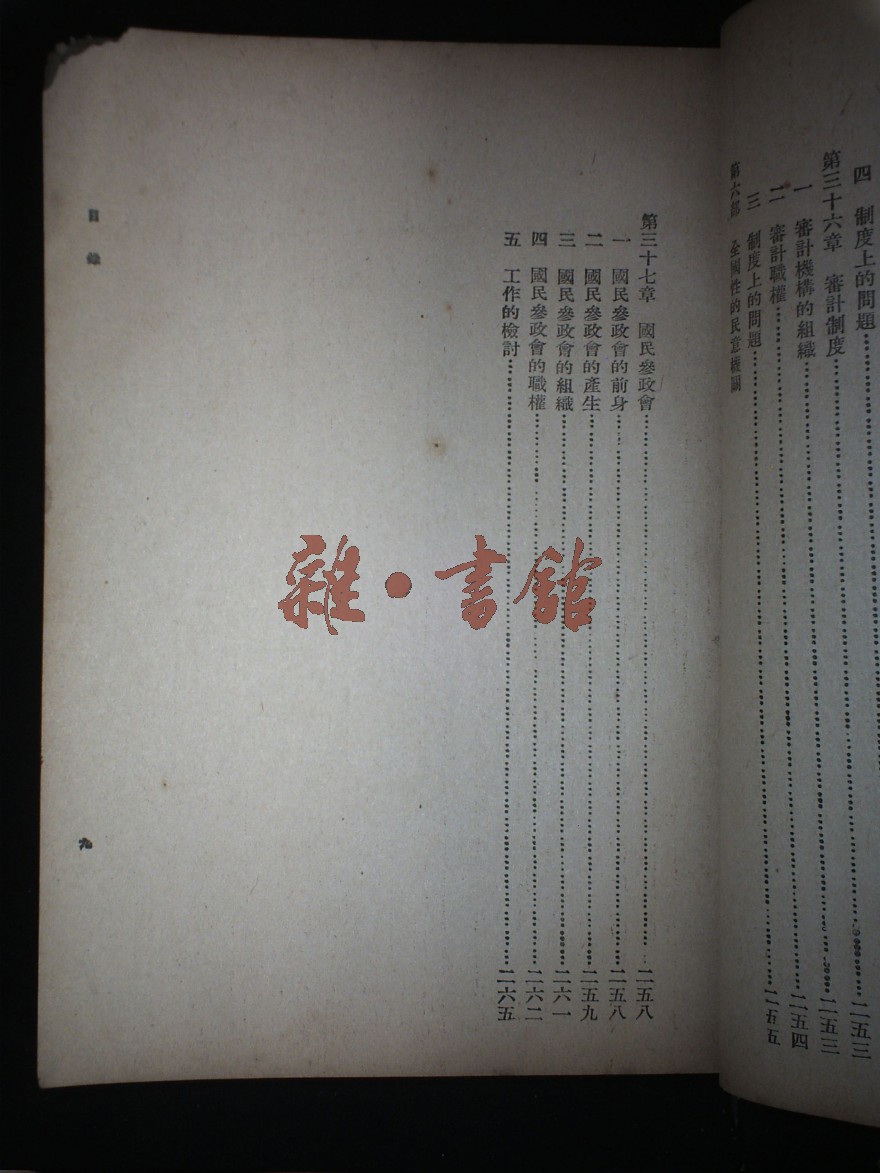 四 制度上的問題……二五三
第三十六章 審計制度……二五三
一 審計機構的組織……二五四
二 審計職權……
三 制度上的問題……二五五
第六部 全國性的民意機關
第三十七章 國民參政會……二五八
一 國民參政會的前身……二五八
二 國民參政會的產生……二五九
三 國民參政會的組織……二六一
四 國民參政會的職權……二六二
五 工作的檢討……二六五
目錄
九
雜·書館